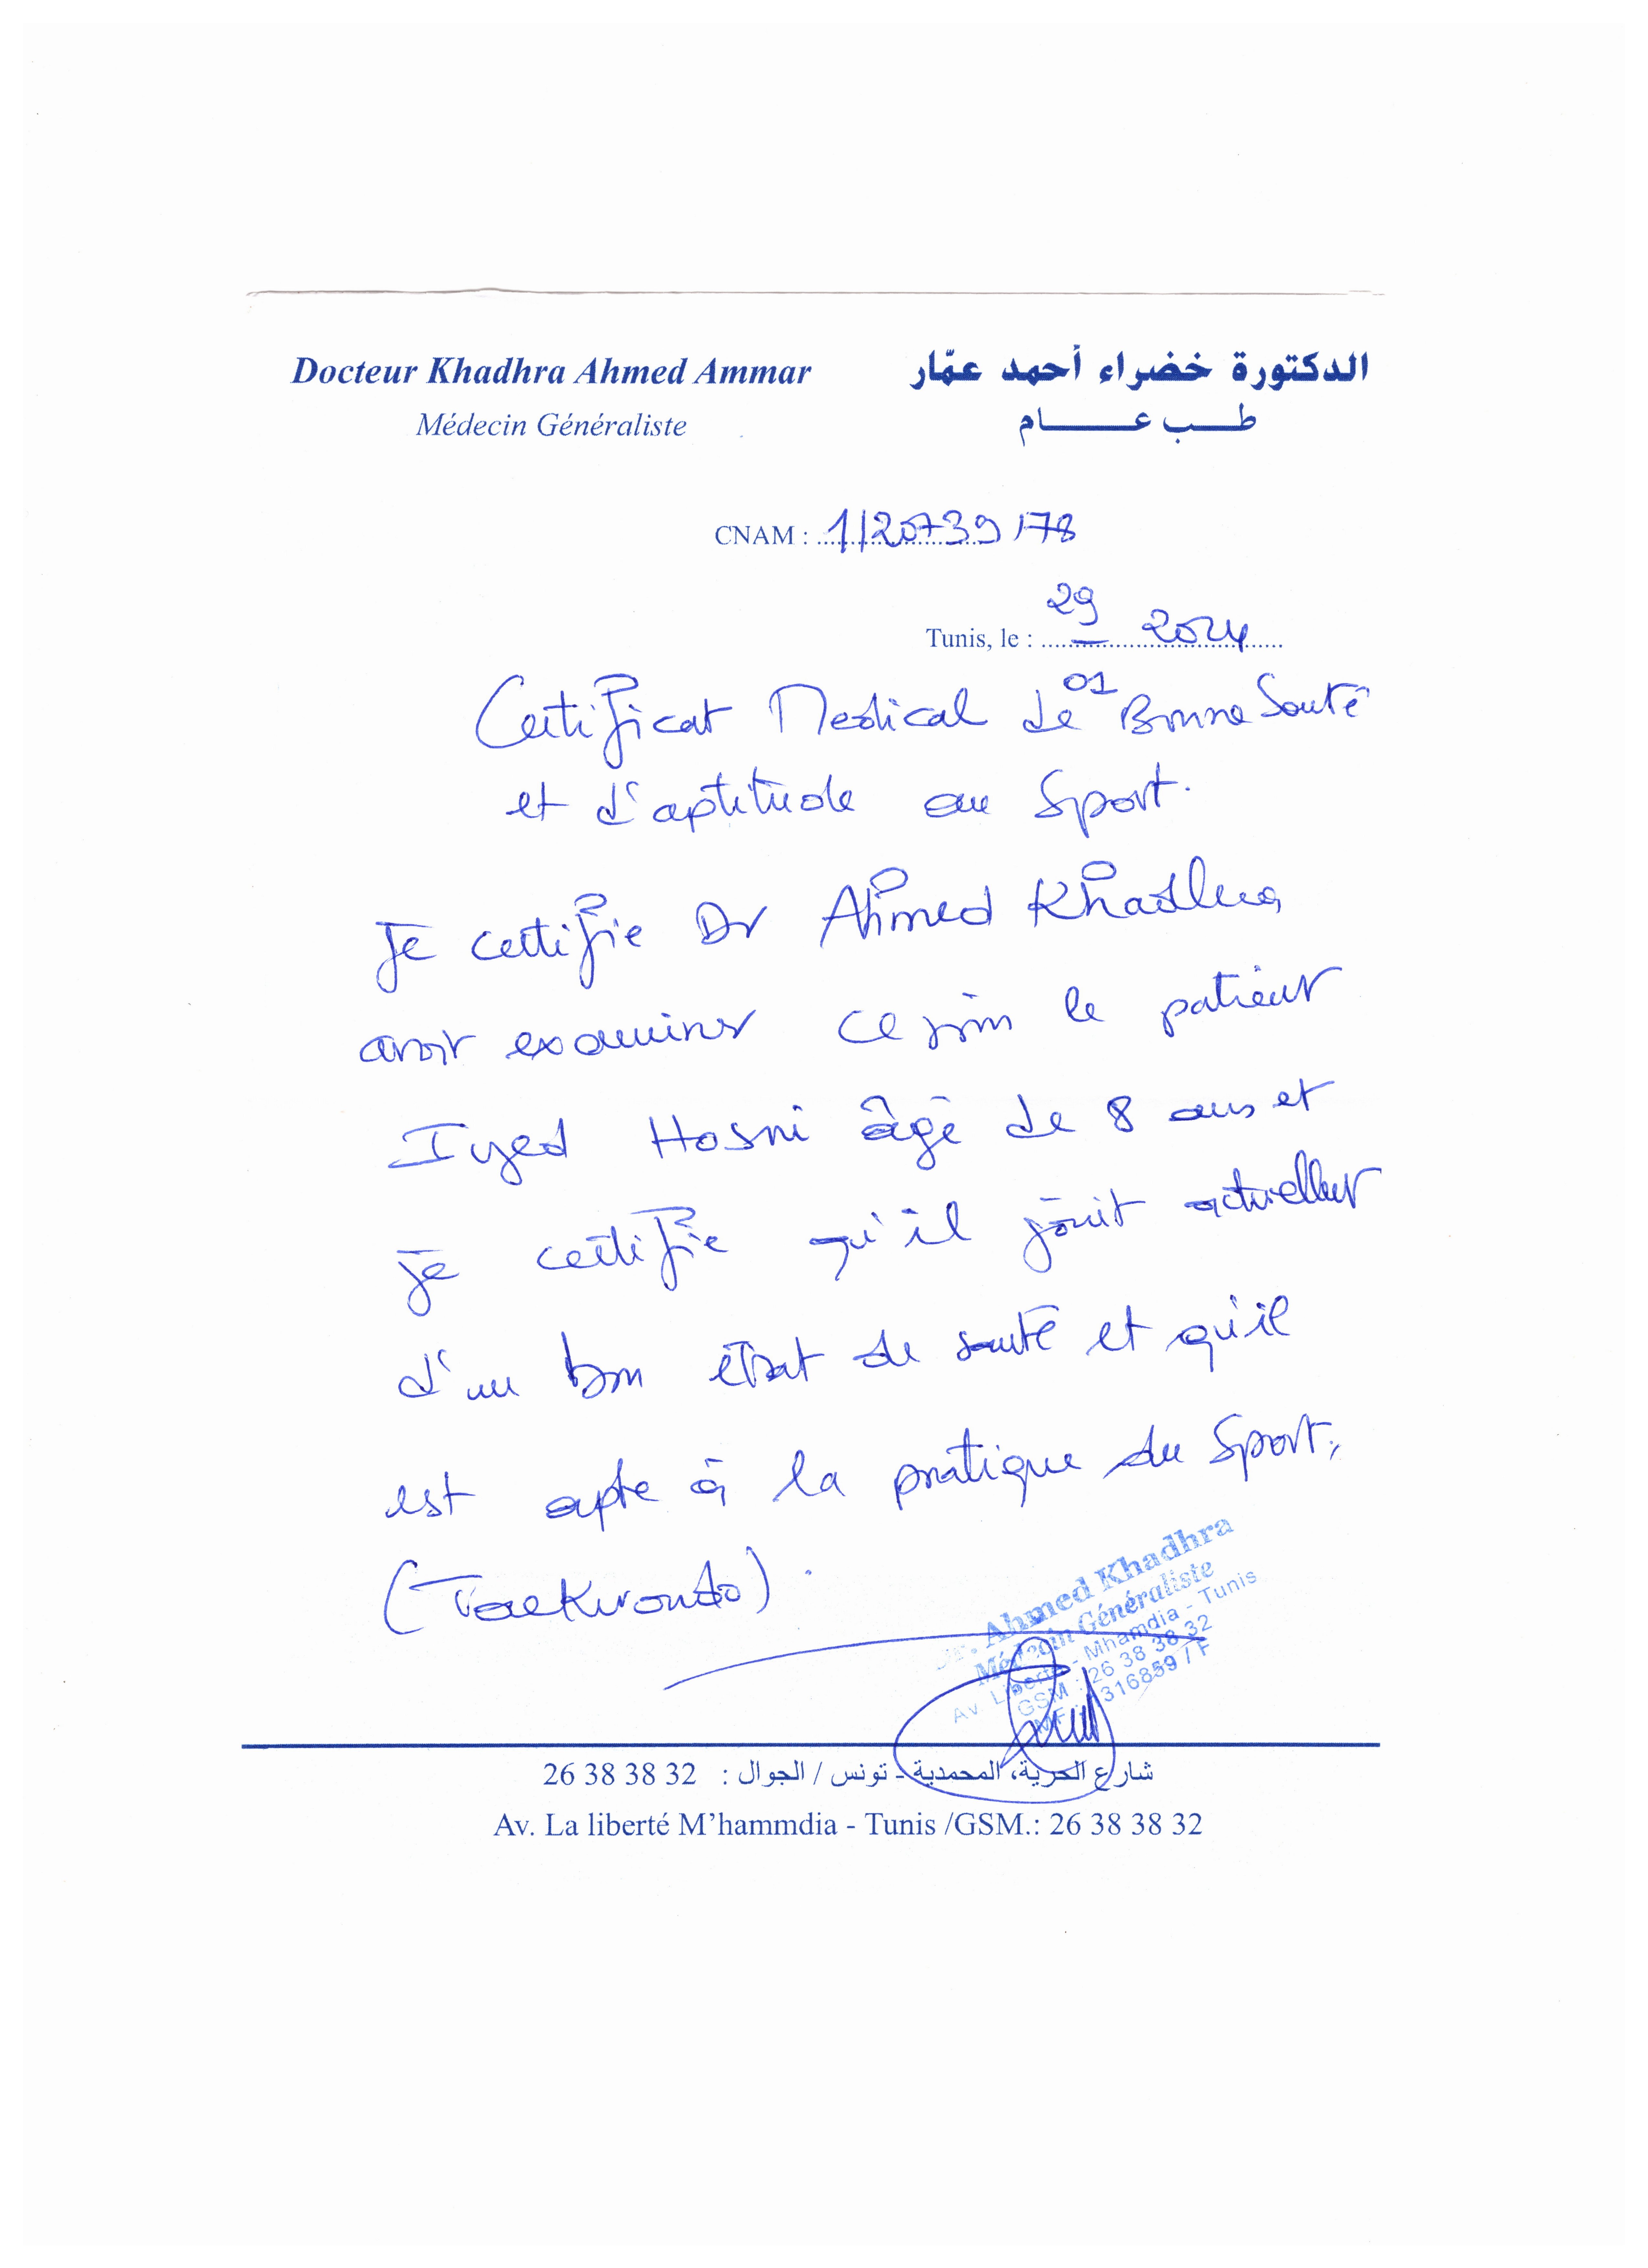 Docteur Khadhra Ahmed Ammar
الدكتورة خضراء أحمد عمّار
Médecin Généraliste
طب عام
CNAM : 1/20739/78
Tunis, le : 29 2024
01
Certificat Medical de Bonne Santé
et d'aptitude au Sport.
Je certifie Dr Ahmed Khadhra
avoir examiner ce jour le patient
Iyed Hosni âgé de 8 ans et
je certifie qu'il jouit actuellent
d'un bon état de santé et qu'il
est apte à la pratique du Sport.
(Taekwondo).
Dr. Ahmed Khadhra
Médecin Généraliste
Av Liberté - Mhamdia - Tunis
GSM : 26 38 38 32
MF : 316859 / F
شارع الحرية، المحمدية - تونس / الجوال : 26 38 38 32
Av. La liberté M'hammdia - Tunis /GSM.: 26 38 38 32